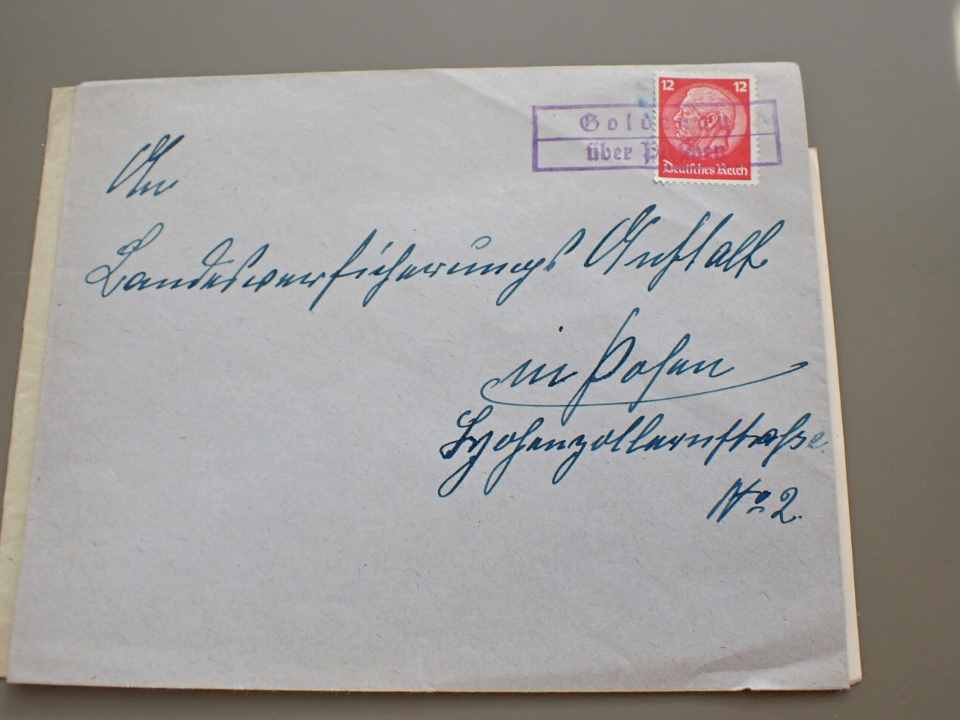 12 12
über
Deutsches Reich
An
Landesversicherungs Anstalt
in Posen
Hohenzollernstraße
No 2.